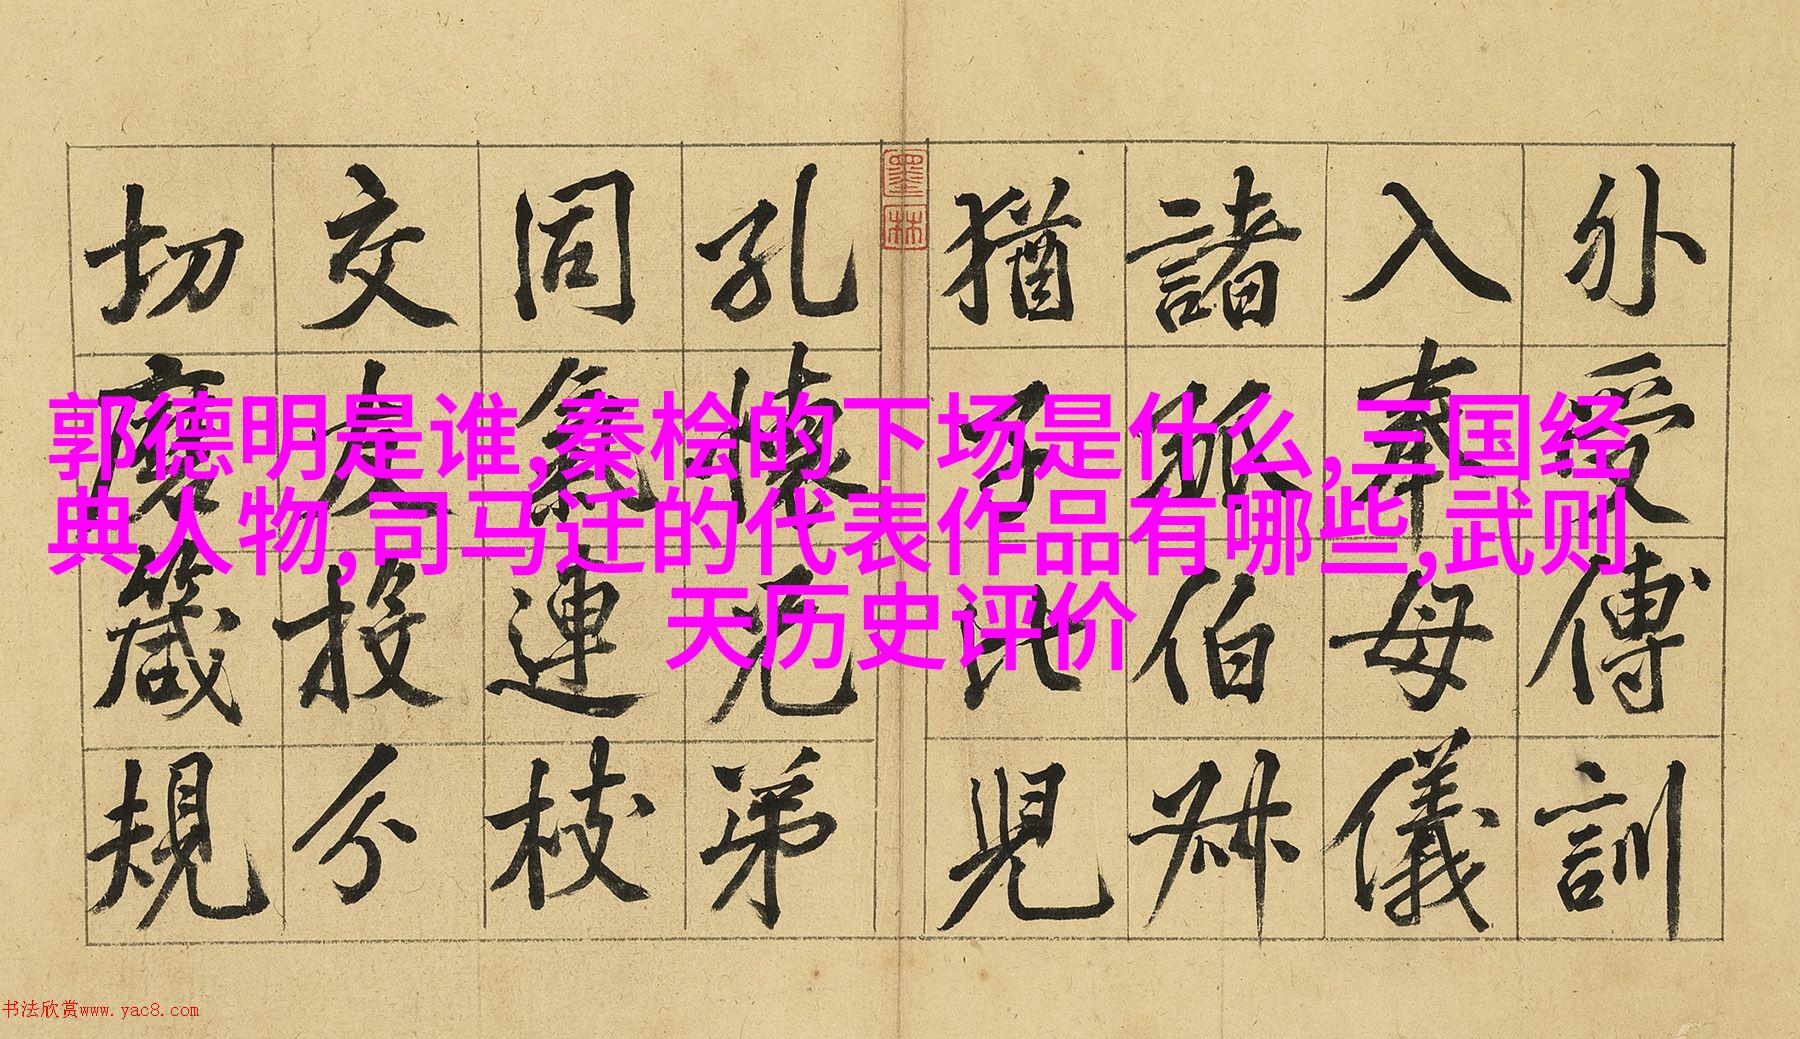 外受傅訓
入奉母儀
諸姑伯叔
猶子比兒
墨林
孔懷兄弟
同氣連枝
交友投分
切磨箴規
郭德明是谁,秦桧的下场是什么,三国经
典人物,司马迁的代表作品有哪些,武则
天历史评价
书法欣赏www.yac8.com